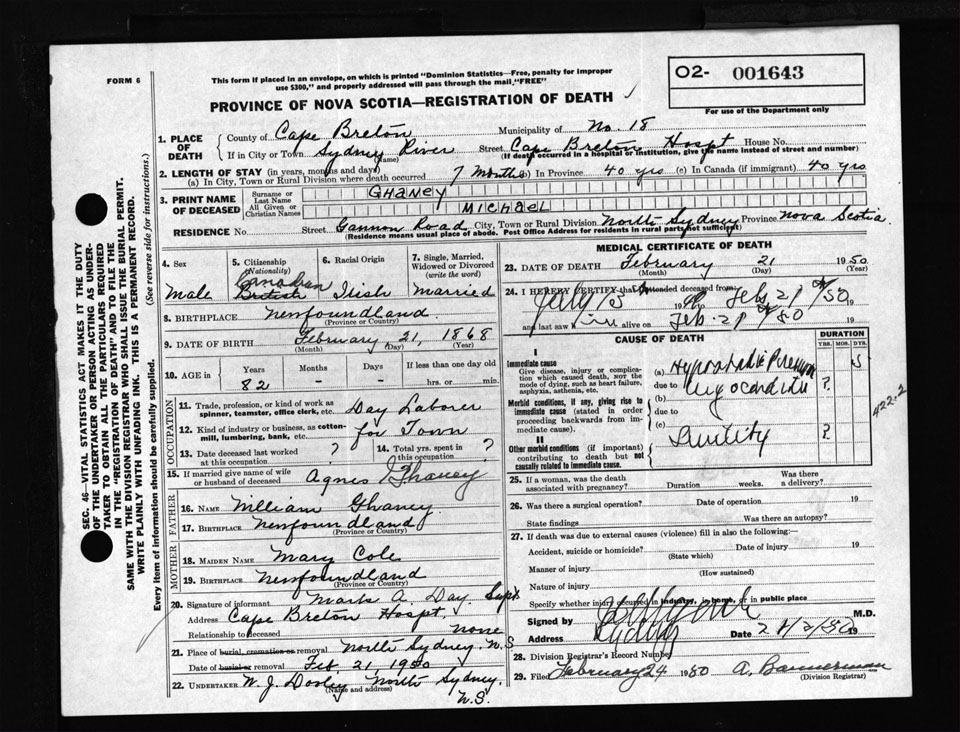 FORM 6
This form if placed in an envelope, on which is printed "Dominion Statistics—Free, penalty for improper
use $300," and properly addressed will pass through the mail, "FREE"
PROVINCE OF NOVA SCOTIA—REGISTRATION OF DEATH
O2- 001643
For use of the Department only
SEC. 46—VITAL STATISTICS ACT MAKES IT THE DUTY
OF THE UNDERTAKER OR PERSON ACTING AS UNDER-
TAKER TO OBTAIN ALL THE PARTICULARS REQUIRED
IN THE "REGISTRATION OF DEATH" AND TO FILE THE
SAME WITH THE DIVISION REGISTRAR WHO SHALL ISSUE THE BURIAL PERMIT.
WRITE PLAINLY WITH UNFADING INK. THIS IS A PERMANENT RECORD.
Every item of information should be carefully supplied. (See reverse side for instructions.)
1. PLACE OF DEATH
County of Cape Breton Municipality of No. 18
If in City or Town Sydney River (Name) Street Cape Breton Hospt House No.
(If death occurred in a hospital or institution, give the name instead of street and number)
2. LENGTH OF STAY (in years, months and days)
(a) In City, Town or Rural Division where death occurred 7 Months (b) In Province 40 yrs (c) In Canada (if immigrant) 40 yrs
3. PRINT NAME OF DECEASED
Surname or Last Name GHANEY
All Given or Christian Names MICHAEL
RESIDENCE No. Street Gannon Road City, Town or Rural Division North Sydney Province Nova Scotia
(Residence means usual place of abode. Post Office Address for residents in rural parts not sufficient)
4. Sex
Male
5. Citizenship (Nationality)
Canadian
British
6. Racial Origin
Irish
7. Single, Married, Widowed or Divorced (write the word)
Married
8. BIRTHPLACE Newfoundland
(Province or Country)
9. DATE OF BIRTH February 21, 1868
(Month) (Day) (Year)
10. AGE in Years Months Days If less than one day old
82 - - hrs. or min.
OCCUPATION
11. Trade, profession, or kind of work as
spinner, teamster, office clerk, etc. Day Laborer
12. Kind of industry or business, as cotton-
mill, lumbering, bank, etc. for Town
13. Date deceased last worked at this occupation ?
14. Total yrs. spent in this occupation ?
15. If married give name of wife
or husband of deceased Agnes Ghaney
FATHER
16. Name William Ghaney
17. Birthplace Newfoundland
(Province or Country)
MOTHER
18. MAIDEN NAME Mary Cole
19. BIRTHPLACE Newfoundland
(Province or Country)
20. Signature of informant Mark A. Day. Supt
Address Cape Breton Hospt.
Relationship to deceased none
21. Place of burial, cremation or removal North Sydney, N.S
Date of burial or removal Feb 21 1950
22. UNDERTAKER W. J. Dooley North Sydney.
(Name and address) N.S.
MEDICAL CERTIFICATE OF DEATH
23. DATE OF DEATH February 21 1950
(Month) (Day) (Year)
24. I HEREBY CERTIFY that I attended deceased from:
Feb 21 50 19
and last saw him alive on Feb. 21 50 19
CAUSE OF DEATH
DURATION
YRS. MOS. DYS.
I
Immediate cause
Give disease, injury or complica-
tion which caused death, not the
mode of dying, such as heart failure,
asphyxia, asthenia, etc.
(a) 5
due to Myocarditis ?
Morbid conditions, if any, giving rise to
immediate cause (stated in order
proceeding backwards from im-
mediate cause).
(b)
due to
(c)
II
Other morbid conditions (if important)
contributing to death but not
causally related to immediate cause.
Senility ?
422.2
25. If a woman, was the death
associated with pregnancy? Duration weeks. Was there a delivery?
26. Was there a surgical operation? Date of operation 19
State findings Was there an autopsy?
27. If death was due to external causes (violence) fill in also the following:—
Accident, suicide or homicide? Date of injury 19
(State which)
Manner of injury
(How sustained)
Nature of injury
Specify whether injury occurred in industry, in home, or in public place
Signed by M.D.
Address Sydney Date 21/2/50 19
28. Division Registrar's Record Number
29. Filed February 24 1950 A. Bannerman
(Division Registrar)